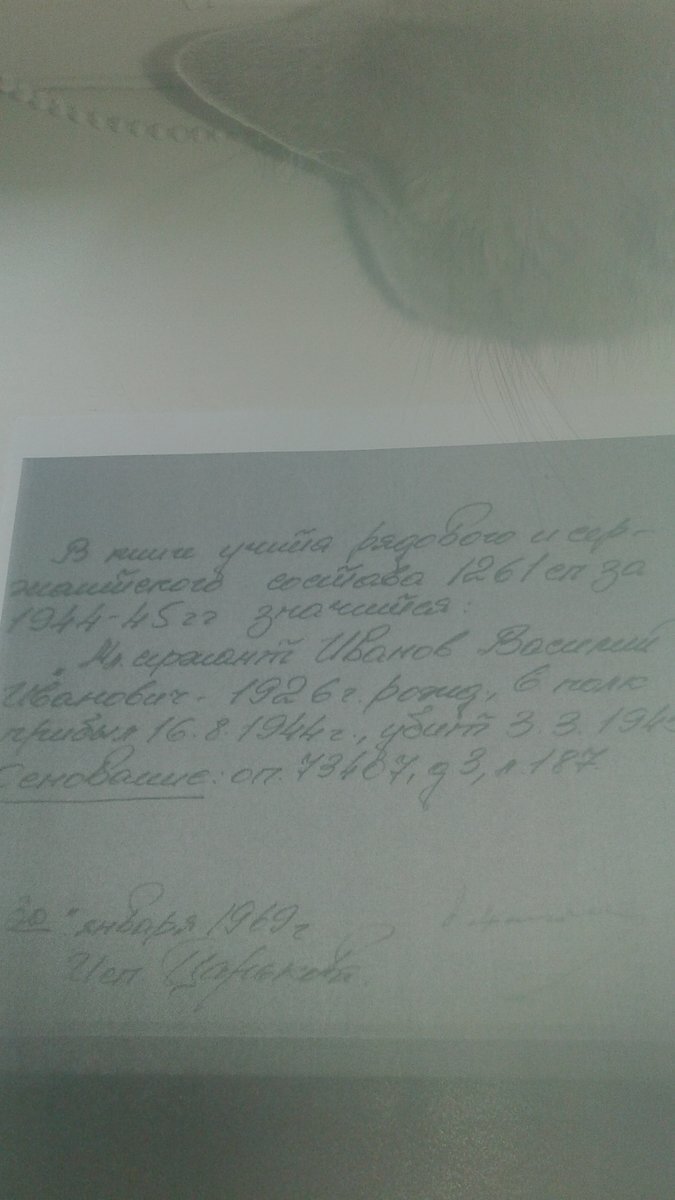 В книге учёта рядового и сер-
жантского состава 1261 сп за
1944-45 гг значится:
"Мл. сержант Иванов Василий
Иванович - 1926 г. рожд., в полк
прибыл 16.8.1944 г., убит 3.3.1945
Основание: оп. 73407, д 3, л. 187
"20" января 1969 г
Исп. Царькова